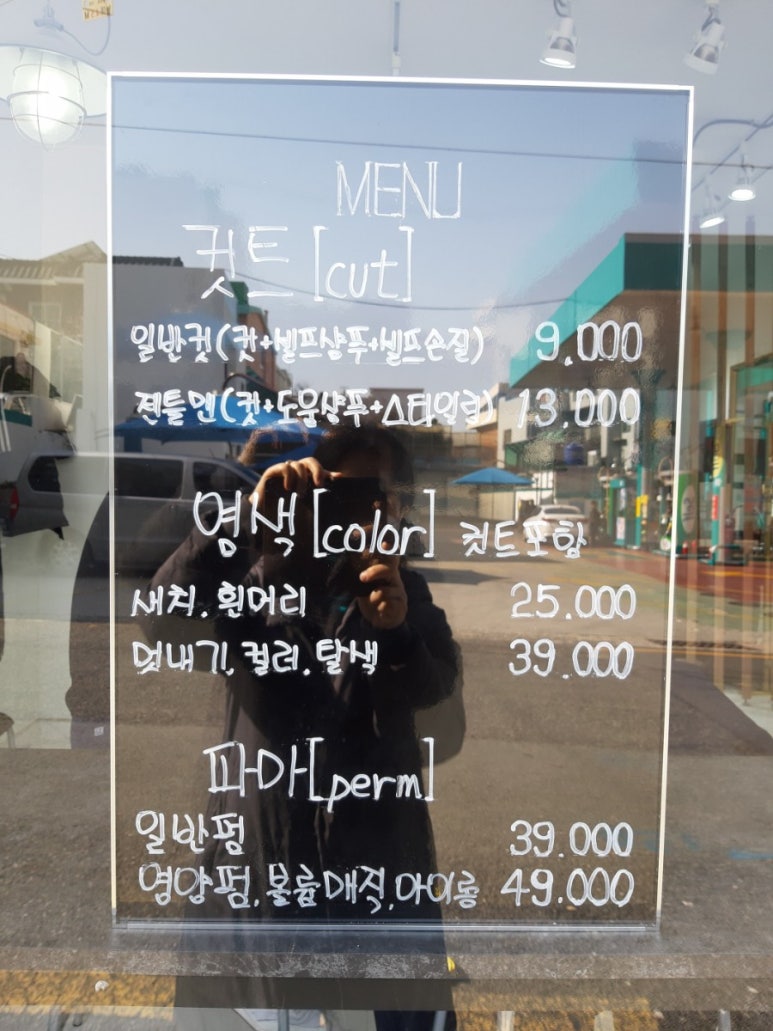 MENU
컷트 [cut]
일반컷(컷+셀프샴푸+셀프손질) 9,000
젠틀맨(컷+도움샴푸+스타일링) 13,000
염색 [color] 컷트포함
새치. 흰머리 25.000
멋내기. 컬러. 탈색 39.000
파마 [perm]
일반펌 39.000
영양펌. 볼륨매직. 아이롱 49.000